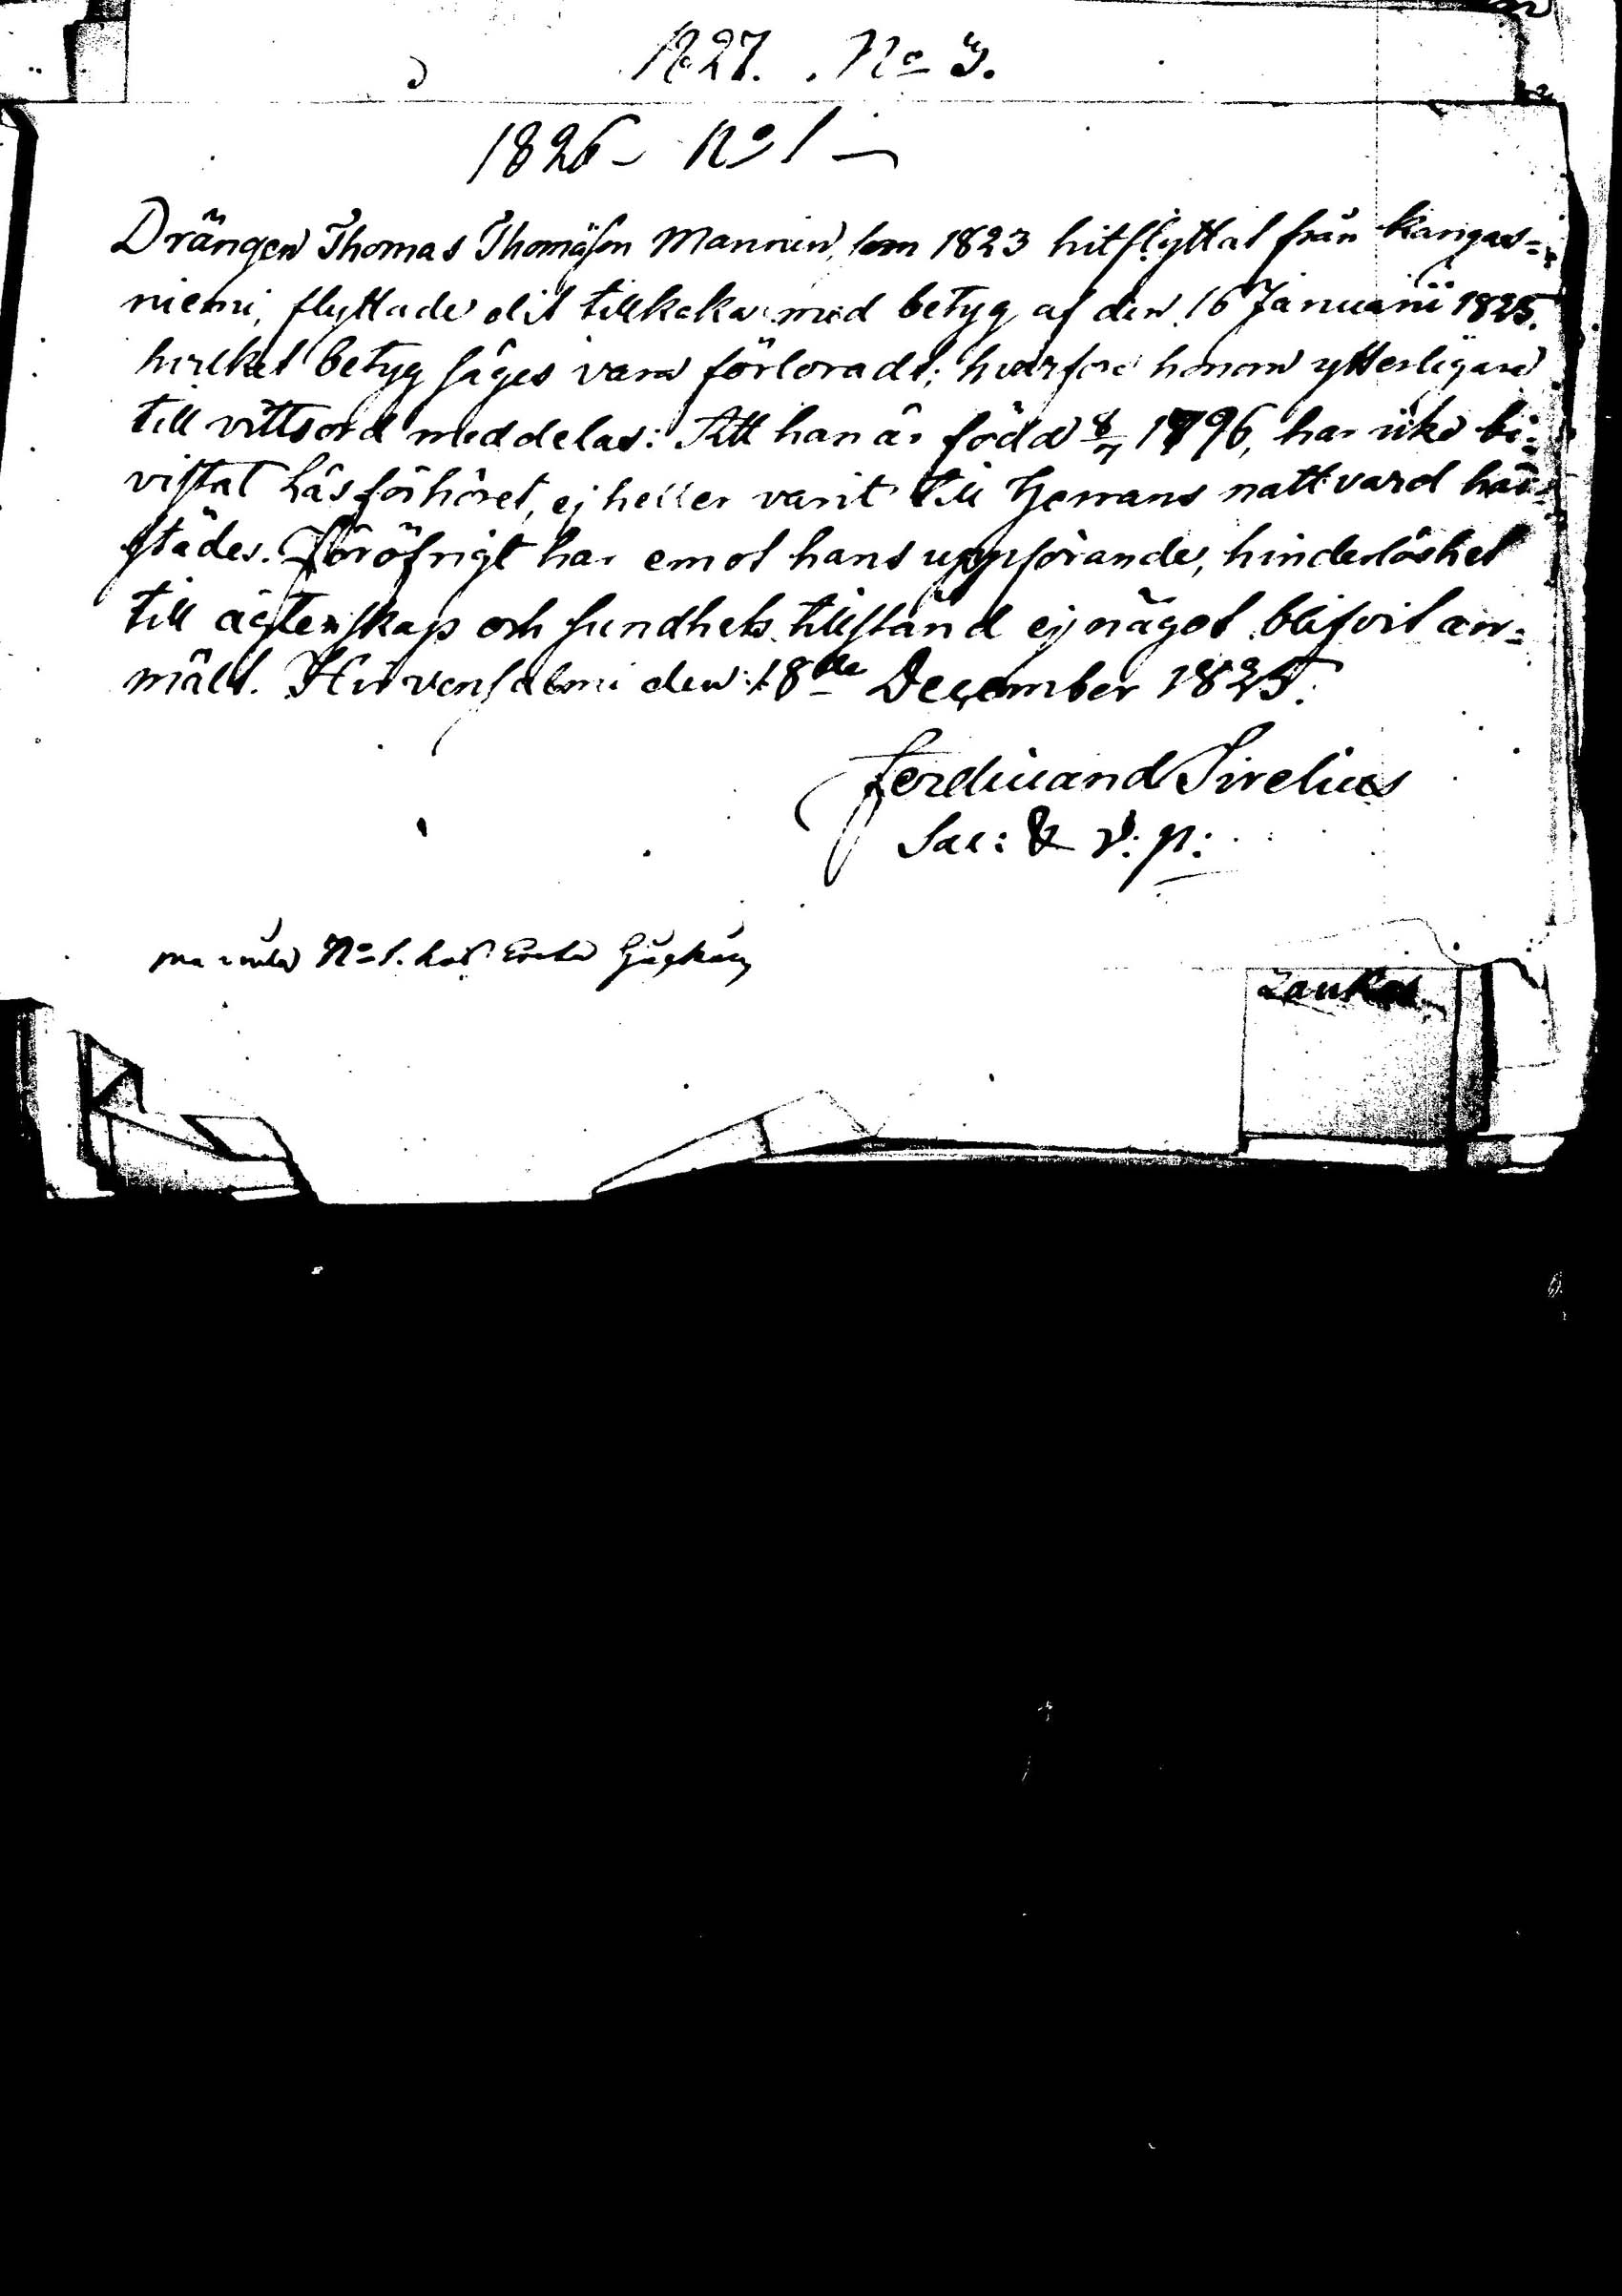 1827. No 3.
1826 – No 1 –
Drängen Thomas Thomäson Mannin, som 1823 hitflyttat från Kangas=
niemi, flyttade dit tillbaka med betyg af den 16 Januarii 1825.
hvilket betyg säges vara förloradt; hvarföre honom ytterligare
till vittsord meddelas: Att han är född 8/7 1796, har icke bi=
vistat Läsförhöret, ej heller varit till Herrans nattvard här=
städes. Föröfrigt har emot hans uppförande, hinderlöshet
till ägtenskap och sundhets tillstånd ej något blifvit an=
mält. Hirvensalmi den 18de December 1825.
Ferdinand Sirelius
Sac: & v: p:
No 1. hos